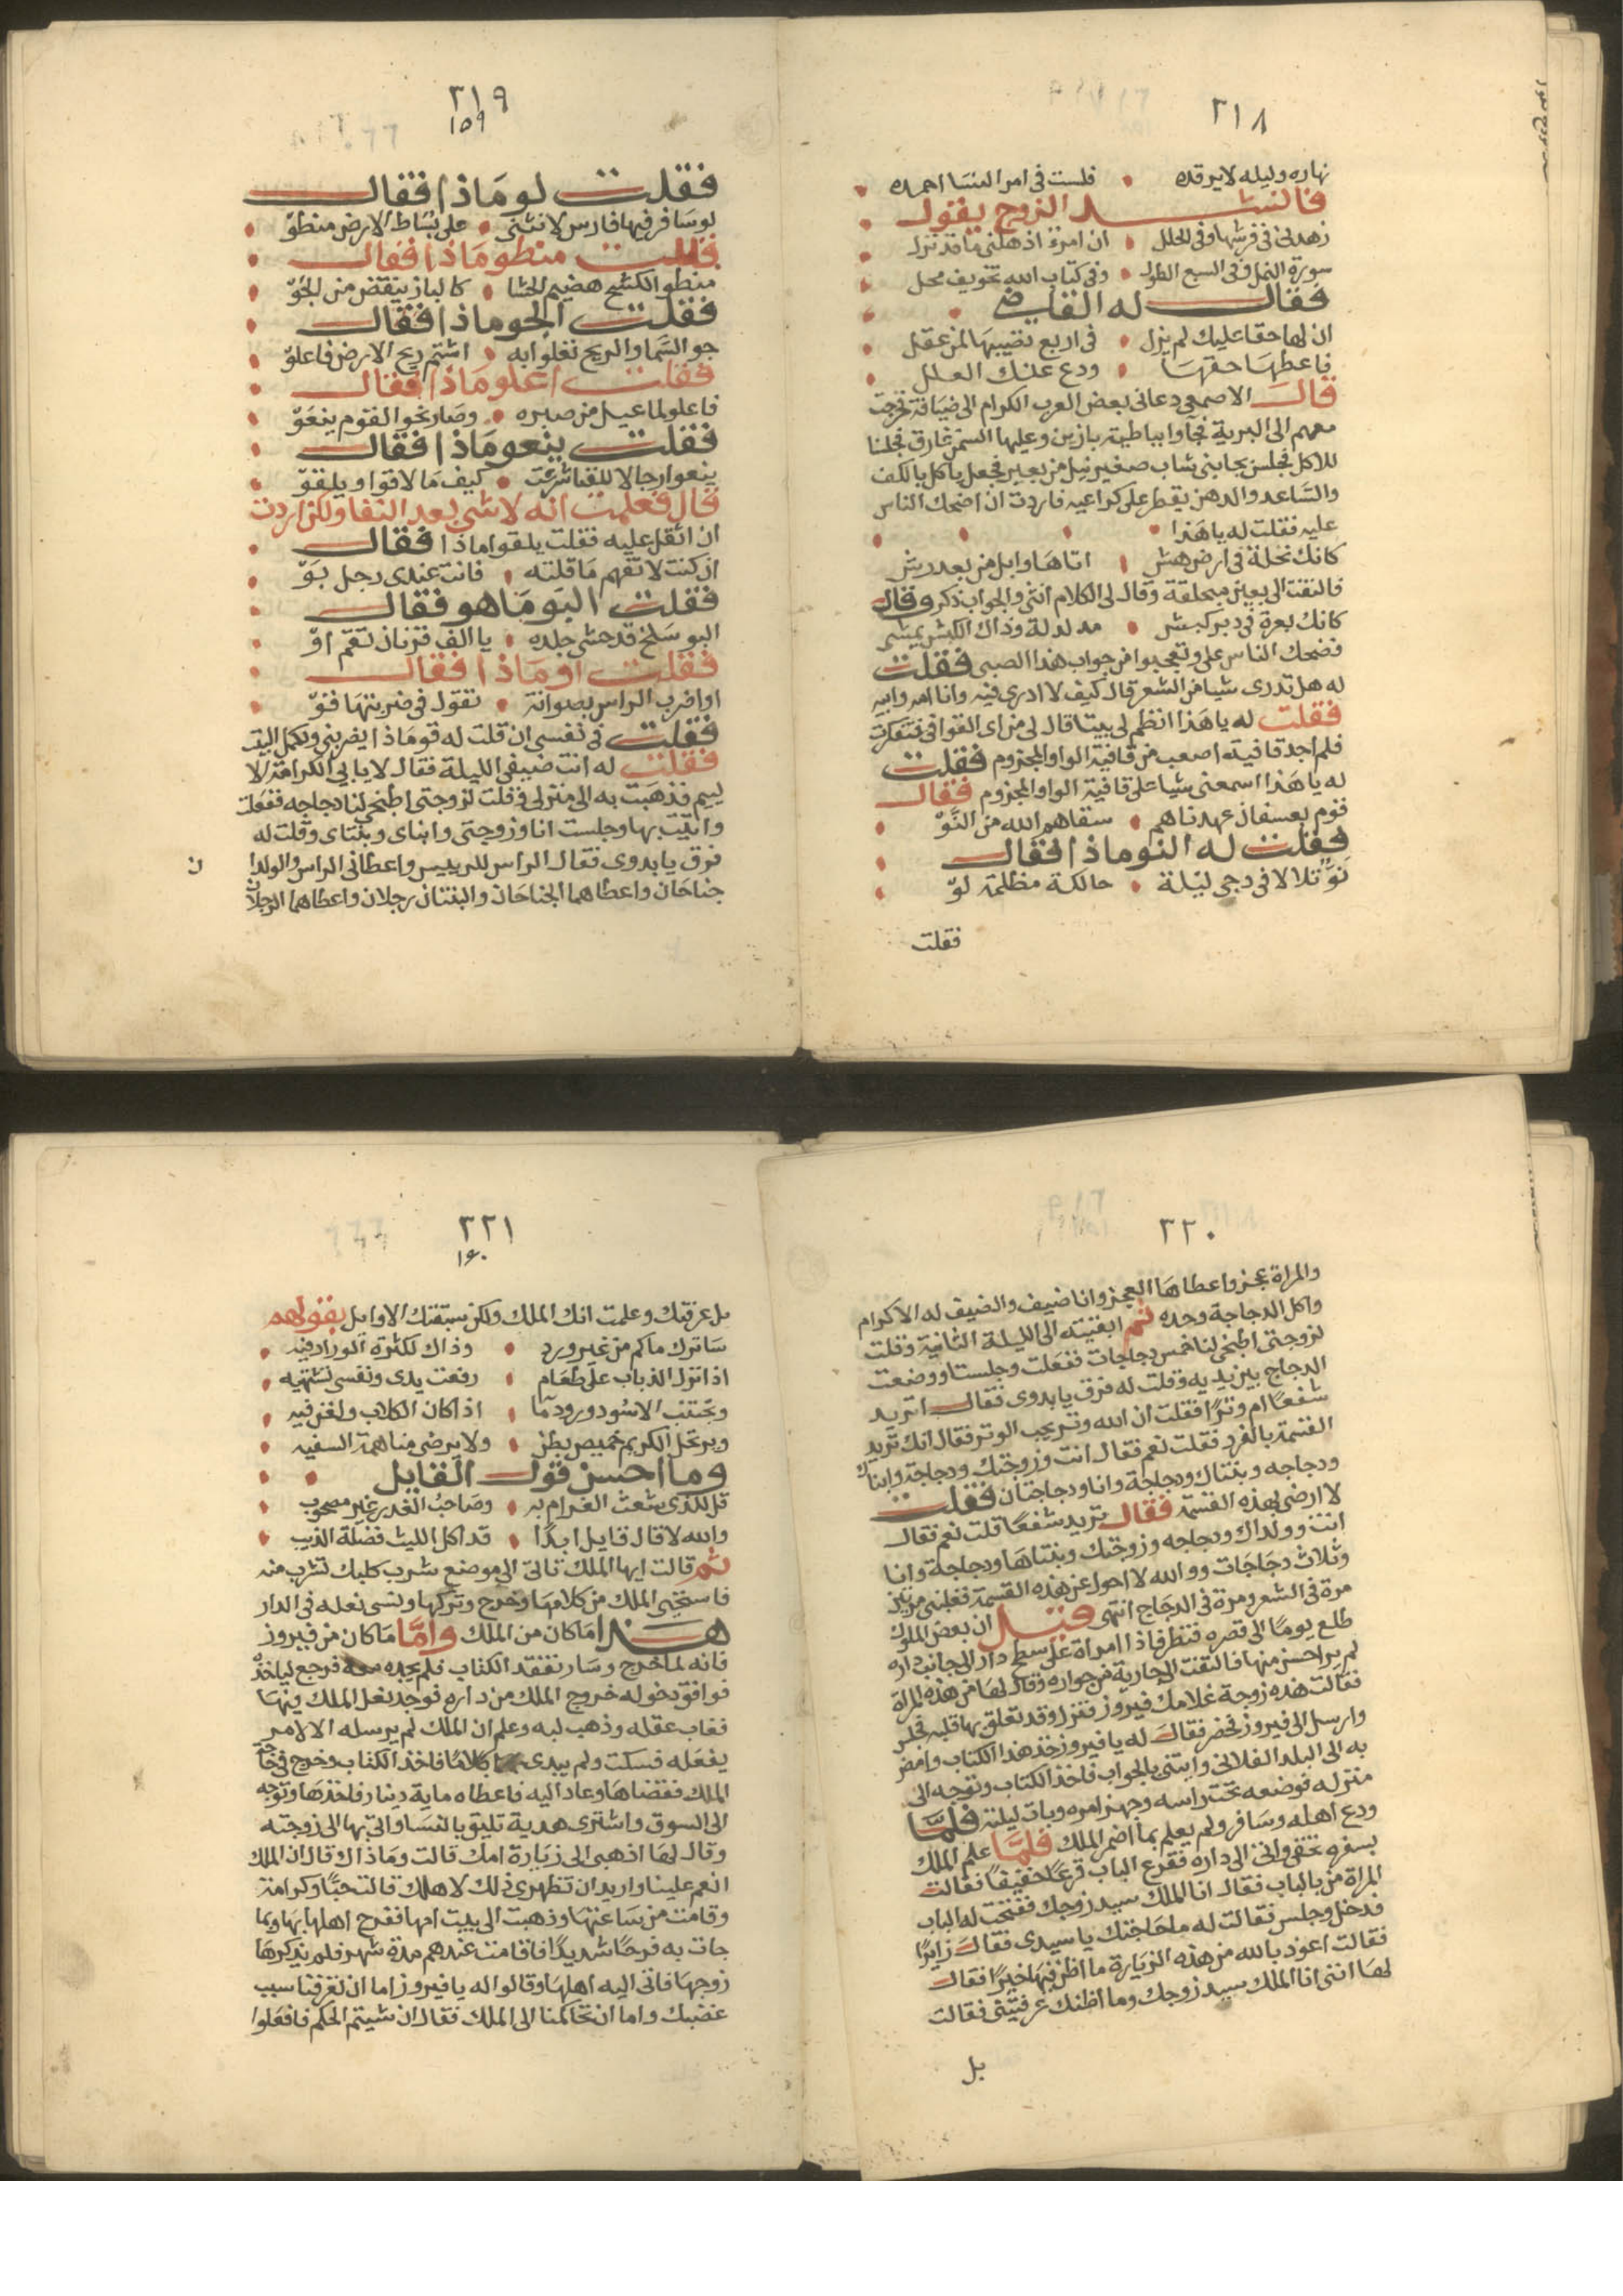 ٣١٨
نهاره وليله لا يرقده فلست فى امر النسا احمده
فانشد الزوج يقول
زهدنى فى فرشها وفى الحلل انى امرؤ اذهلنى ما قد نزل
سورة النمل وفى السبع الطول وفى كتاب الله تخويف محل
فقال له القاضى
ان لها حقا عليك لم يزل فى اربع نصيبها لمن عقل
فاعطها حقها ودع عنك العلل
قال الاصمعى دعانى بعض العرب الكرام الى ضيافة فخرجت
معهم الى البرية فجاوا بباطية بازين وعليها السمن غارق فجلسنا
للاكل فجلس بجانبى شاب صغير نيل من بعير فجعل ياكل بالكف
والساعد والدهن يقطر على كراعيه فاردت ان اضحك الناس
عليه فقلت له يا هذا
كانك نخلة فى ارض هش اتاها وابل من بعد رش
فالتفت الى بعين مبحلقة وقال لى الكلام انثى والجواب ذكر وقال
كانك بعرة فى دبر كبش مدلدلة وذاك الكبش يمشى
فضحك الناس على وتعجبوا من جواب هذا الصبى فقلت
له هل تدرى شيا من الشعر قال كيف لا ادرى فيه وانا امه وابيه
فقلت له يا هذا انظم لى بيتا قال لى من اى القوافى فتفكرت
فلم اجد قافية اصعب من قافية الواو المجزوم فقلت
له يا هذا اسمعنى شيا على قافية الواو المجزوم فقال
قوم بعسفان عهدناهم سقاهم الله من النَّوّ
فقلت له النو ماذا فقال
نَوّ تلالا فى دجى ليلة حالكة مظلمة لوّ
فقلت
٣١٩
١٥٩
فقلت لو ماذا فقال
لو سافر فيها فارس لانثنى على بساط الارض منطوّ
فقلت منطو ماذا فقال
منطو الكشح هضيم الحشا كالباز ينقض من الجوّ
فقلت الجو ماذا فقال
جو السما والريح تعلو به اشتم ريح الارض فاعلوّ
فقلت اعلو ماذا فقال
فاعلو لما عيل من صبره وصار نحو القوم ينعوّ
فقلت ينعو ماذا فقال
ينعو رجالا للقنا شرعت كيف ما لاقوا ويلقوّ
قال فعلمت انه لا شى بعد القنا ولكن اردت
ان اثقل عليه فقلت يلقوا ماذا فقال
ان كنت لا تفهم ما قلته فانت عندى رجل بَوّ
فقلت البو ما هو فقال
البو سلخ قد حشى جلده يا الف قرنان تقم اوّ
فقلت او ماذا فقال
او اضرب الراس بصوانة تقول فى ضربتها قوّ
فقلت فى نفسى ان قلت له قو ماذا يضربنى ويكمل البيت
فقلت له انت ضيفى الليلة فقال لا يابى الكرامة الا
ليم فذهبت به الى منزلى وقلت لزوجتى اطبخى لنا دجاجه ففعلت
واتيت بها وجلست انا وزوجتى وابناى وبنتاى وقلت له
فرق يا بدوى فقال الراس للرييس واعطانى الراس والولدا
ن
جناحان واعطاهما الجناحان والبنتان رجلان واعطاهما الرجلان
٣٢٠
والمراة عجز واعطاها العجز وانا ضيف والضيف له الاكرام
واكل الدجاجة وحده ثم ابقيته الى الليلة الثانية وقلت
لزوجتى اطبخى لنا خمس دجاجات ففعلت وجلسنا ووضعت
الدجاج بين يديه وقلت له فرق يا بدوى فقال اتريد
شفعًا ام وترًا فقلت ان الله وتر يحب الوتر فقال انك تريد
القسمة بالفرد فقلت نعم فقال انت وزوجتك ودجاجة وابناك
ودجاجه وبنتاك ودجاجة وانا ودجاجتان فقلت
لا ارضى بهذه القسمة فقال تريد شفعًا قلت نعم فقال
انت وولداك ودجاجه وزوجتك وبنتاها ودجاجة وانا
وثلاث دجاجات ووالله لا احول عن هذه القسمة فغلبنى مرتين
مرة فى الشعر ومرة فى الدجاج انتهى قيل ان بعض الملوك
طلع يومًا الى قصره فنظر فاذا امراة على سطح دار الى جانب داره
لم ير احسن منها فالتفت الى جارية من جواره وقال لها من هذه المراة
فقالت هذه زوجة غلامك فيروز فنزل وقد تعلق بها قلبه فجلس
وارسل الى فيروز فحضر فقال له يا فيروز خذ هذا الكتاب وامض
به الى البلد الفلانى وايتنى بالجواب فاخذ الكتاب وتوجه الى
منزله فوضعه تحت راسه وجهز امره وبات ليلته فلمّا
ودع اهله وسافر ولم يعلم بما اضمر الملك فلمّا علم الملك
بسفره تخفى واتى الى داره فقرع الباب قرعًا خفيفًا فقالت
المراة من بالباب فقال انا الملك سيد زوجك ففتحت له الباب
فدخل وجلس فقالت له ما حاجتك يا سيدى فقال زايرًا
فقالت اعوذ بالله من هذه الزيارة ما اظن فيها خيرًا فقال
لها اننى انا الملك سيد زوجك وما اظنك عرفتينى فقالت
بل
٣٢١
١٦٠
بل عرفتك وعلمت انك الملك ولكن سبقتك الاوايل بقولهم
ساترك ماكم من غير ورد وذاك لكثرة الوراد فيه
اذا نزل الذباب على طعام رفعت يدى ونفسى تشتهيه
وتجتنب الاسود ورود ما اذا كان الكلاب ولغن فيه
ويرتحل الكريم خميص بطن ولا يرضى مناهمة السفيه
وما احسن قول القايل
قل للذى شعث الغرام به وصاحب الغدر غير مصحوب
والله لا قال قايل ابدًا قد اكل الليث فضلة الذيب
ثم قالت ايها الملك تاتى الى موضع شرب كلبك تشرب منه
فاستحيى الملك من كلامها وخرج وتركها ونسى نعله فى الدار
هذا ما كان من الملك وامّا ما كان من فيروز
فانه لما خرج وسار تفقد الكتاب فلم يجده معه فرجع لياخذه
فوافق دخوله خروج الملك من داره فوجد نعل الملك فيها
فغاب عقله وذهب لبه وعلم ان الملك لم يرسله الا لامر
يفعله فسكت ولم يبدى كلامًا فاخذ الكتاب وخرج فى حاجة
الملك فقضاها وعاد اليه فاعطاه ماية دينار فاخذها وتوجه
الى السوق واشترى هدية تليق بالنسا واتى بها الى زوجته
وقال لها اذهبى الى زيارة امك قالت وما ذاك قال ان الملك
انعم علينا واريد ان تظهرى ذلك لاهلك قالت حبًا وكرامة
وقامت من ساعتها وذهبت الى بيت امها ففرح اهلها بها وبما
جات به فرحًا شديدًا فاقامت عندهم مدة شهر فلم يذكرها
زوجها فاتى اليه اهلها وقالوا له يا فيروز اما ان تعرفنا سبب
غضبك واما ان تحاكمنا الى الملك فقال ان شيتم الحكم فافعلوا